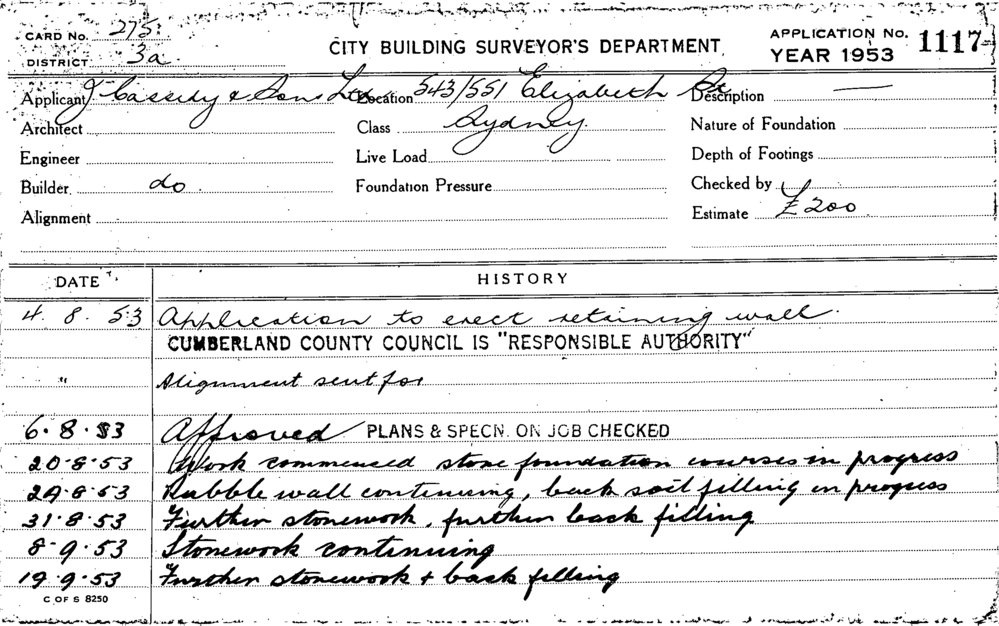 CARD No. 275
DISTRICT 3a
CITY BUILDING SURVEYOR'S DEPARTMENT
APPLICATION No. 1117
YEAR 1953
Applicant J Cassidy & Sons Ltd Location 543/551 Elizabeth St Description —
Architect Class Sydney Nature of Foundation
Engineer Live Load Depth of Footings
Builder do Foundation Pressure Checked by
Alignment Estimate £200
DATE HISTORY
4. 8. 53 Application to erect retaining wall.
CUMBERLAND COUNTY COUNCIL IS "RESPONSIBLE AUTHORITY"
" Alignment sent for
6.8.53 Approved PLANS & SPECN. ON JOB CHECKED
20.8.53 Work commenced stone foundation courses in progress
24.8.53 Rubble wall continuing, back soil filling in progress
31.8.53 Further stonework, further back filling
8-9.53 Stonework continuing
19.9.53 Further stonework + back filling
C OF S 8250